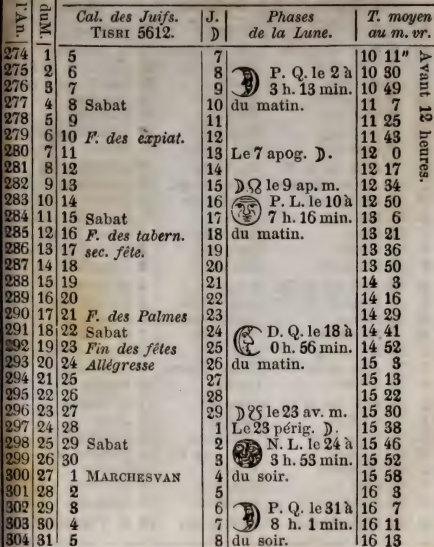 l'An. duM. Cal. des Juifs. J. Phases T. moyen
TISRI 5612. ☽ de la Lune. au m. vr.
274 1 5 7 10 11"
275 2 6 8 P. Q. le 2 à 10 30
276 3 7 9 3 h. 13 min. 10 49
277 4 8 Sabat 10 du matin. 11 7
278 5 9 11 11 25
279 6 10 F. des expiat. 12 11 43
280 7 11 13 Le 7 apog. ☽. 12 0
281 8 12 14 12 17
282 9 13 15 ☽☊ le 9 ap. m. 12 34
283 10 14 16 P. L. le 10 à 12 50
284 11 15 Sabat 17 7 h. 16 min. 13 6
285 12 16 F. des tabern. 18 du matin. 13 21
286 13 17 sec. fête. 19 13 36
287 14 18 20 13 50
288 15 19 21 14 3
289 16 20 22 14 16
290 17 21 F. des Palmes 23 14 29
291 18 22 Sabat 24 D. Q. le 18 à 14 41
292 19 23 Fin des fêtes 25 0 h. 56 min. 14 52
293 20 24 Allégresse 26 du matin. 15 3
294 21 25 27 15 13
295 22 26 28 15 22
296 23 27 29 ☽☋ le 23 av. m. 15 30
297 24 28 1 Le 23 périg. ☽. 15 38
298 25 29 Sabat 2 N. L. le 24 à 15 46
299 26 30 3 3 h. 53 min. 15 52
300 27 1 MARCHESVAN 4 du soir. 15 58
301 28 2 5 16 3
302 29 3 6 P. Q. le 31 à 16 7
303 30 4 7 8 h. 1 min. 16 11
304 31 5 8 du soir. 16 13
Avant 12 heures.